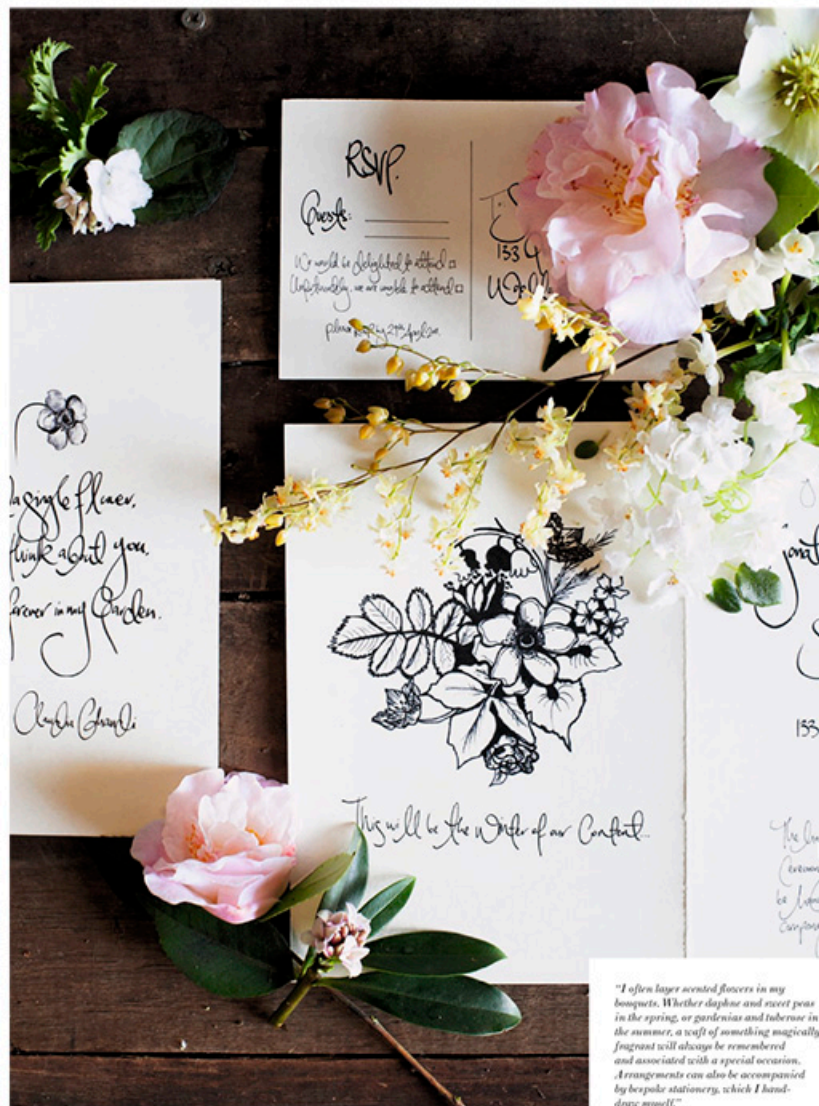 RSVP.
Guests:
We would be delighted to attend
Unfortunately, we are unable to attend
please RSVP by 29th April 2011
To: S
133 G
a single flower,
think about you,
forever in my Garden.
Claudia Ghandi
This will be the Winter of our Content
Jonat
133
The
Ceremony
be
"I often layer scented flowers in my
bouquets. Whether daphne and sweet peas
in the spring, or gardenias and tuberose in
the summer, a waft of something magically
fragrant will always be remembered
and associated with a special occasion.
Arrangements can also be accompanied
by bespoke stationery, which I hand-
draw myself."